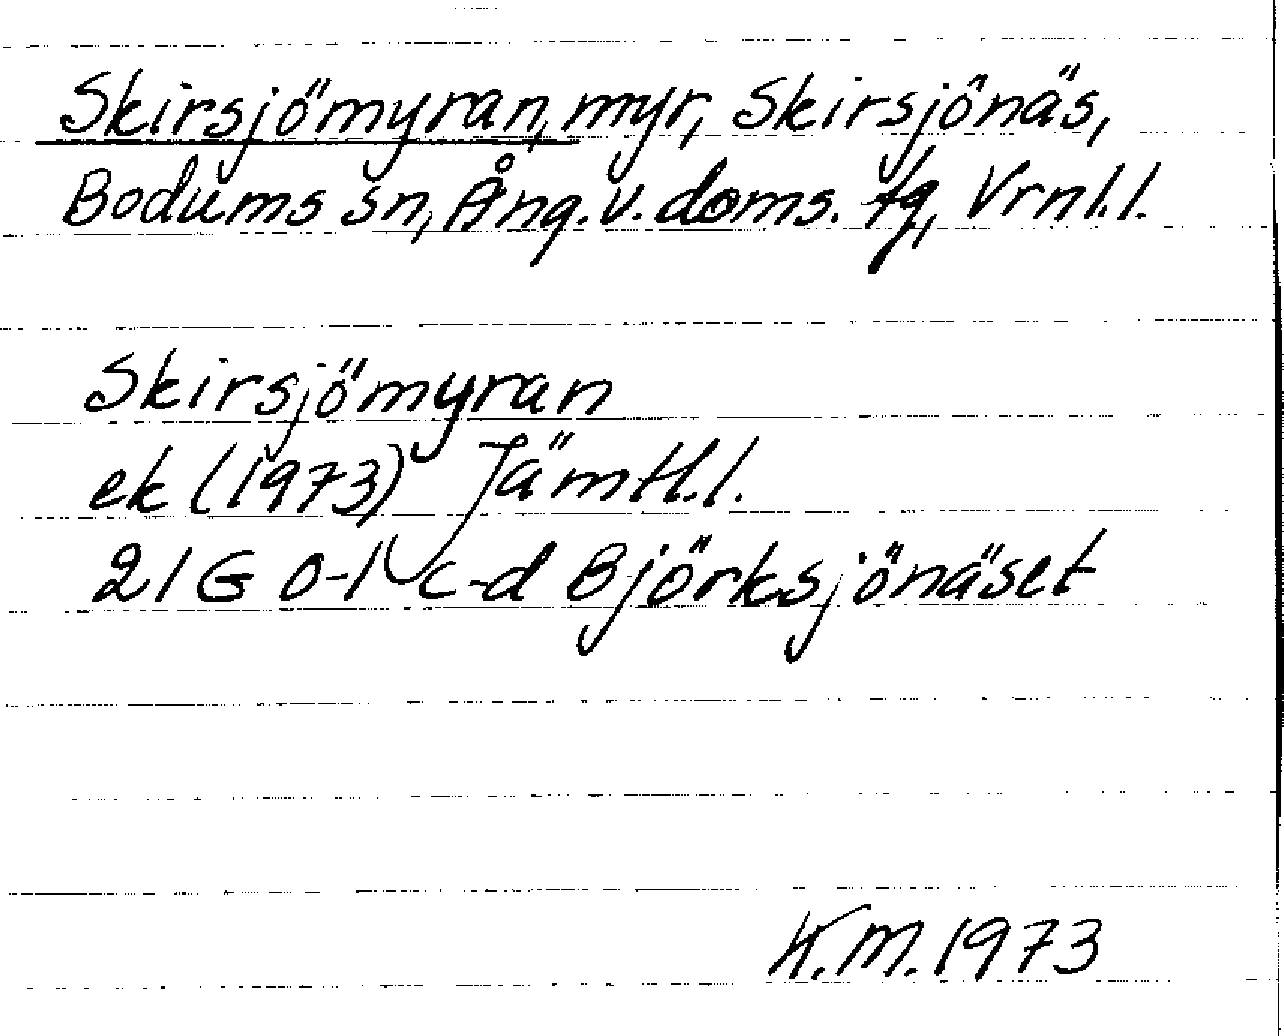 Skirsjömyran, myr, Skirsjönäs,
Bodums sn, Ång. v. doms. tg, Vrnl. l.
Skirsjömyran
ek (1973) Jämtl. l.
21G 0-1 c-d Björksjönäset
K.M. 1973